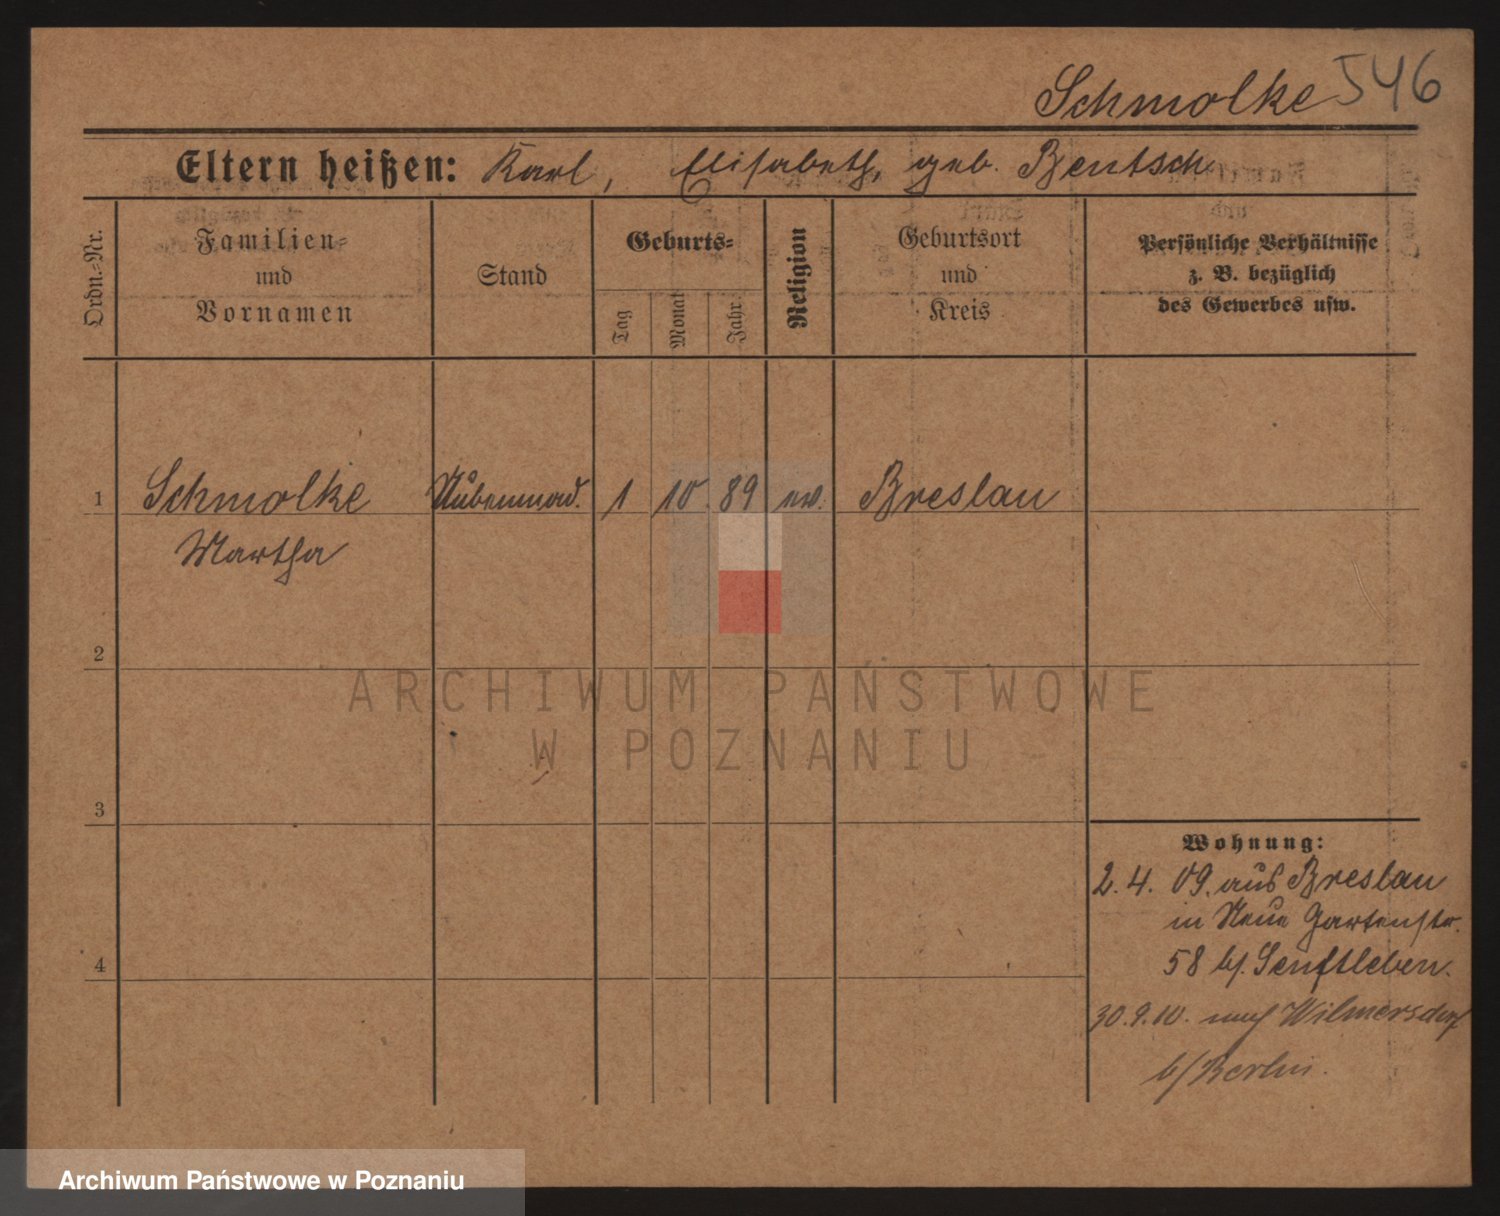 Schmolke 546
Eltern heißen: Karl, Elisabeth, geb. Bentsch
Ordn.-Nr.
Familien-
und
Vornamen
Stand
Geburts-
Tag
Monat
Jahr
Religion
Geburtsort
und
Kreis
Persönliche Verhältnisse
z. B. bezüglich
des Gewerbes usw.
1 Schmolke 1 10 89 ev. Breslau
Martha
2
3
4
Wohnung:
2. 4. 09. aus Breslau
in Neue Gartenstr.
58 bf. Senftleben.
30. 9. 10. nach Wilmersdorf
b/Berlin.
ARCHIWUM PAŃSTWOWE
W POZNANIU
Archiwum Państwowe w Poznaniu